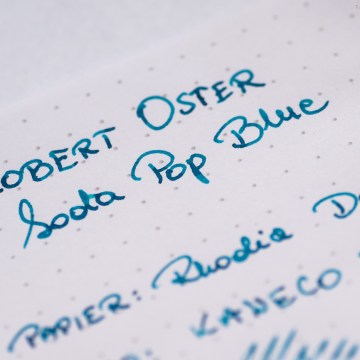 ROBERT OSTER
Soda Pop Blue
PAPIER: Rhodia D
: KAWECO